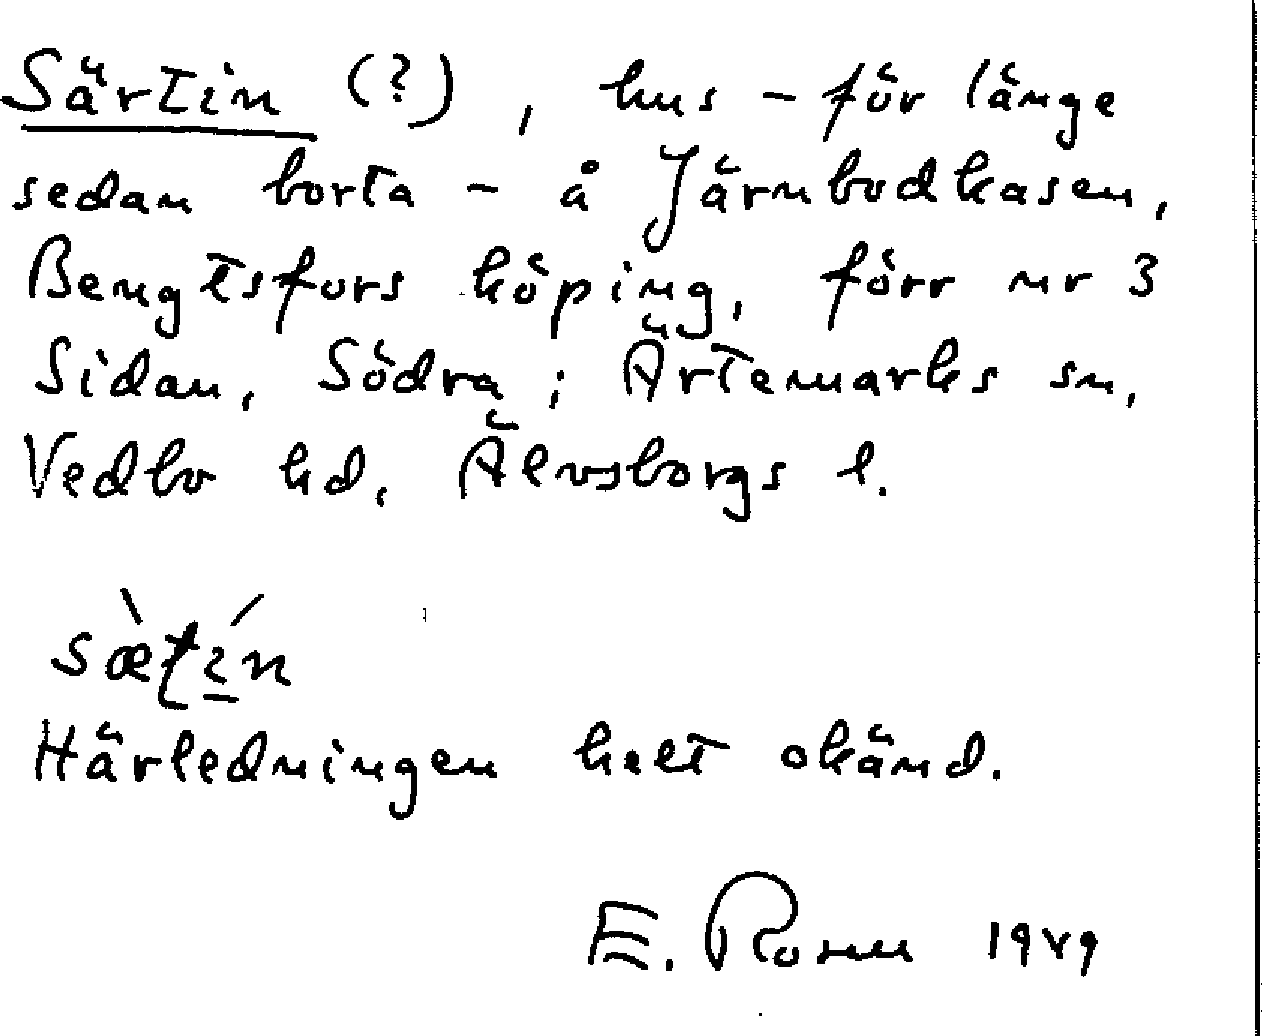 Särtin (?), hus - för länge
sedan borta - å Järnbodkasen,
Bengtsfors köping, förr nr 3
Sidan, Södra; Ärtemarks sn,
Vedbo hd, Älvsborgs l.
Härledningen helt okänd.
E. Rosell 1949